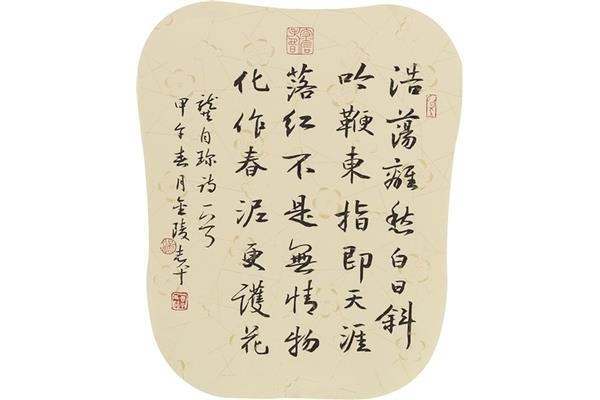 浩蕩離愁白日斜
吟鞭東指即天涯
落紅不是無情物
化作春泥更護花
龔自珍詩一首
甲午春月金陵志